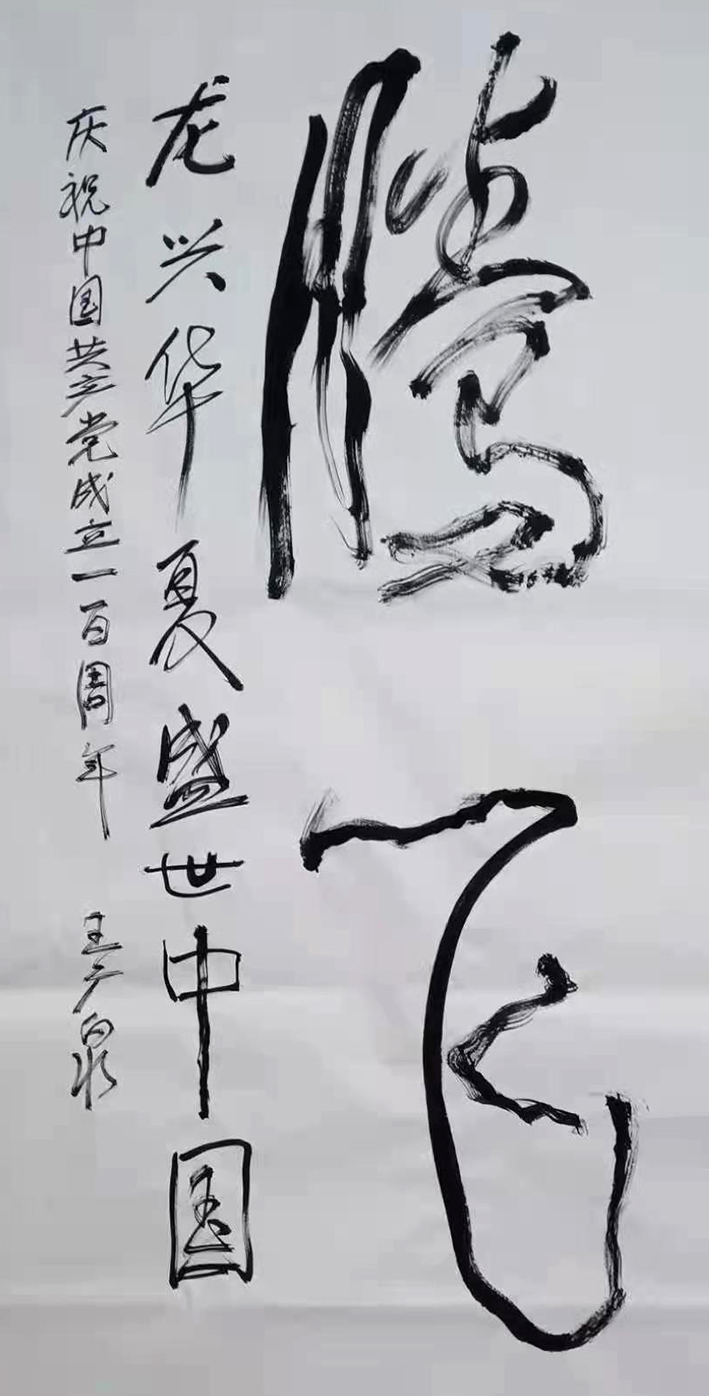 腾飞
龙兴华夏盛世中国
庆祝中国共产党成立一百周年 王广泉